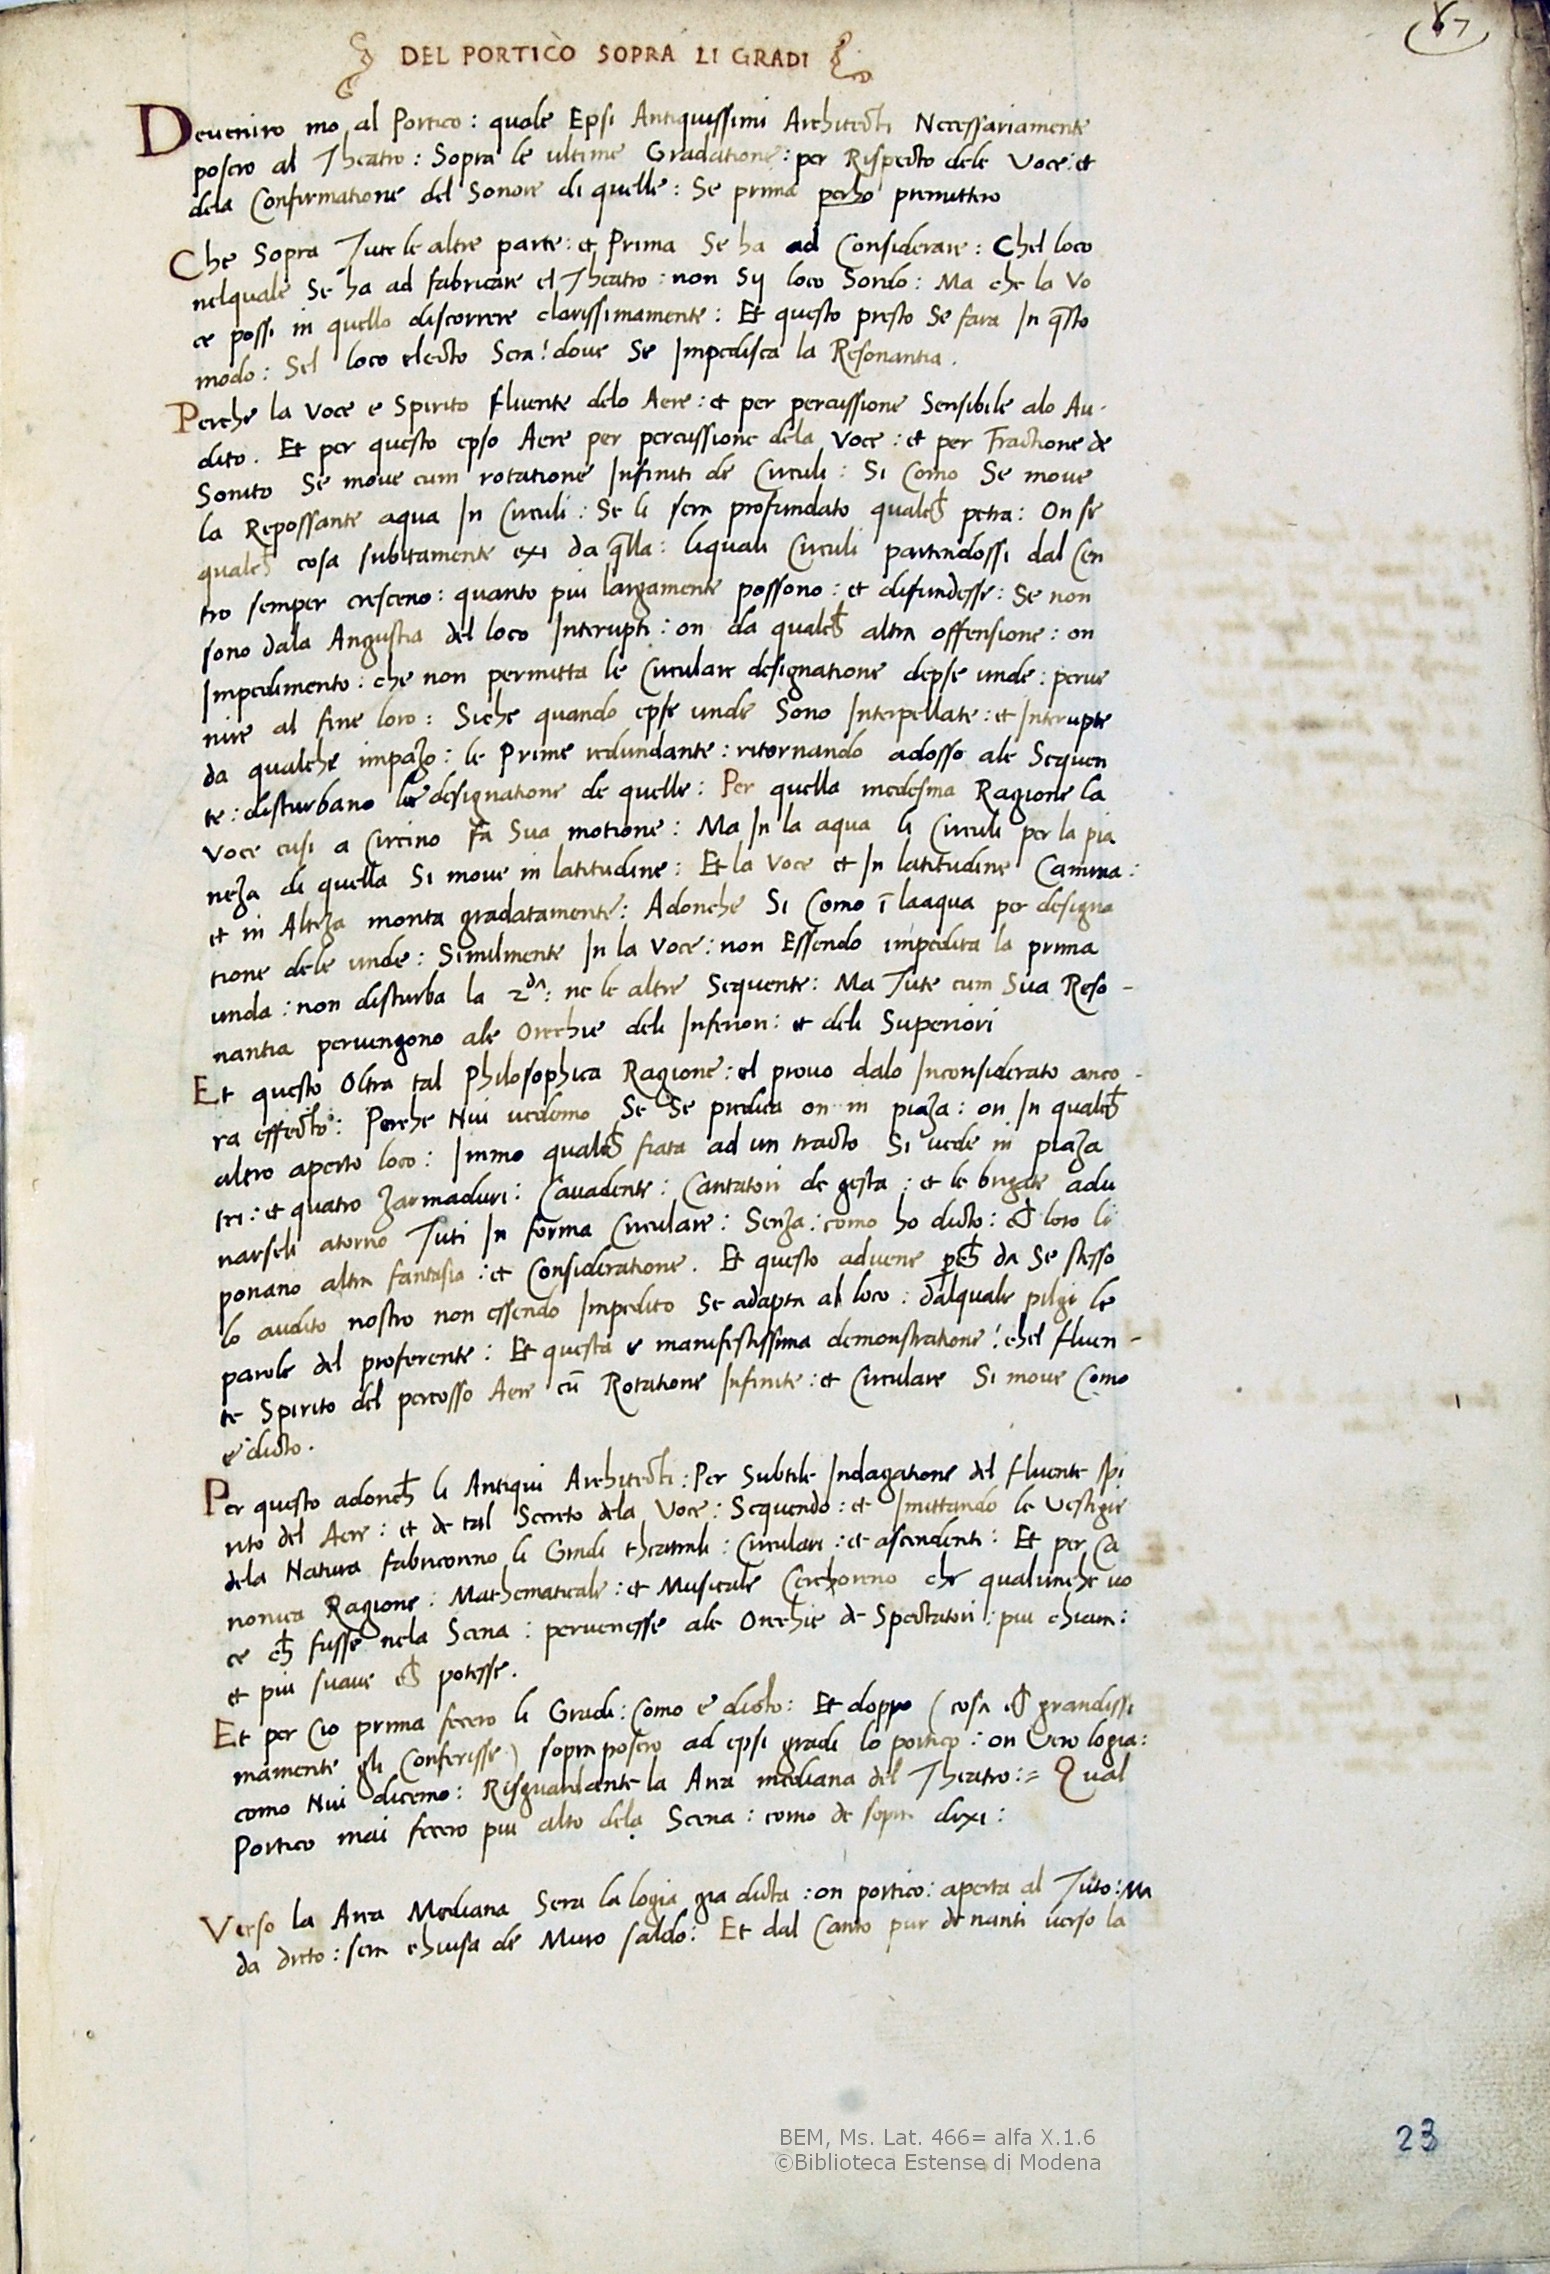 67
DEL PORTICO SOPRA LI GRADI
Deueniro mo al Portico: quale Epsi Antiquissimi Architecti Necessariamente
posero al Theatro: Sopra le ultime Gradatione: per Rispecto dele Voce: et
dela Confirmatione del Sonore di quelle: Se prima perho premittero
Che Sopra Tute le altre parte: et Prima Se ha ad Considerare: Chel loco
nelquale Se ha ad fabricare el Theatro: non Sij loco Sordo: Ma che la Vo
ce possi in quello discorrere clarissimamente: Et questo presto Se fara In q̄sto
modo: Sel loco electo Sera! doue Se Impedisca la Resonantia.
Perche la Voce e Spirito fluente delo Aere: et per percussione Sensibile alo Au-
dito. Et per questo epso Aere per percussione dela Voce: et per Fractione de
Sonito Se moue cum rotatione Infiniti de Circuli: Si Como Se moue
la Repossante aqua In Circuli: Se li sera profundato qualch̄ petra: On se
qualch̄ cosa subitamente exi da q̄lla: liquali Circuli partendossi dal Cen
tro semper cresceno: quanto piu largamente possono: et difundesse: Se non
sono dala Angustia del loco Interupti: on da qualch̄ altra offensione: on
Impedimento: che non permitta le Circulare designatione depse unde: perue
nire al fine loro: Siche quando epse unde Sono Interpellate: et Interupte
da qualche impazo: le Prime redundante: ritornando adosso ale Sequen
te: disturbano le designatione de quelle: Per quella medesma Ragione la
Voce cusi a Circino fa Sua motione: Ma In la aqua li Circuli per la pia
neza di quella Si moue in latitudine: Et la Voce et In latitudine Camina:
et in Alteza monta gradatamente: Adonche Si Como ī laaqua per designa
tione dele unde: Similmente In la Voce: non Essendo impedita la prima
unda: non disturba la 2da: ne le altre Sequente: Ma Tute cum Sua Reso-
nantia peruengono ale Orechie deli Inferiori: et deli Superiori
Et questo Oltra tal Philosophica Ragione: el prouo dalo Inconsiderato anco-
ra effecto: Perche Nui uedemo Se Se predica on in piaza: on In qualch̄
altro aperto loco: Immo qualch̄ fiata ad un tracto Si uede in piaza
tri: et quatro Zarmaduri: Cauadente: Cantatori de gesta: et le brigate adu
narseli atorno Tuti In forma Circulare: Senza: como ho dicto: ch̄ loro li
ponano altra fantasia: et Consideratione. Et questo aduene p̱ch̄ da Se stesso
lo audito nostro non essendo Impedito Se adapta al loco: dalquale pilgi le
parole del proferente: Et questa e manifestissima demonstratione! chel fluen-
te Spirito del percosso Aere cū Rotatione Infinite: et Circulare Si moue Como
e dicto.
Per questo adonch̄ li Antiqui Architecti: Per Subtile Indagatione del fluente spi
rito del Aere: et de tal Secreto dela Voce: Sequendo: et Imittando le Vestigie
dela Natura fabricorono li Gradi theatrali: Circulari: et ascendenti: Et per Ca
nonica Ragione: Mathematicale: et Musicale Cerchoreno che qualunche uo
ce ch̄ fusse nela Scena: peruenesse ale Orechie de Spectatori: piu chiara:
et piu suaue ch̄ potesse.
Et per Cio prima fecero li Gradi: Como e dicto: Et doppo (cosa ch̄ grandissi
mamente gli Conferisse) sopra posero ad epsi gradi lo portico: on Vero logia:
como Nui dicemo: Risguardante la Ara mediana del Theatro:= Qual
Portico mai fecero piu alto dela Scena: como de sopra dixi:
Verso la Ara Mediana Sera la logia gia dicta: on portico: aperta al Tuto: Ma
da drето: sera chiusa de Muro saldo: Et dal Canto pur de nanti uerso la
BEM, Ms. Lat. 466= alfa X.1.6
©Biblioteca Estense di Modena
23